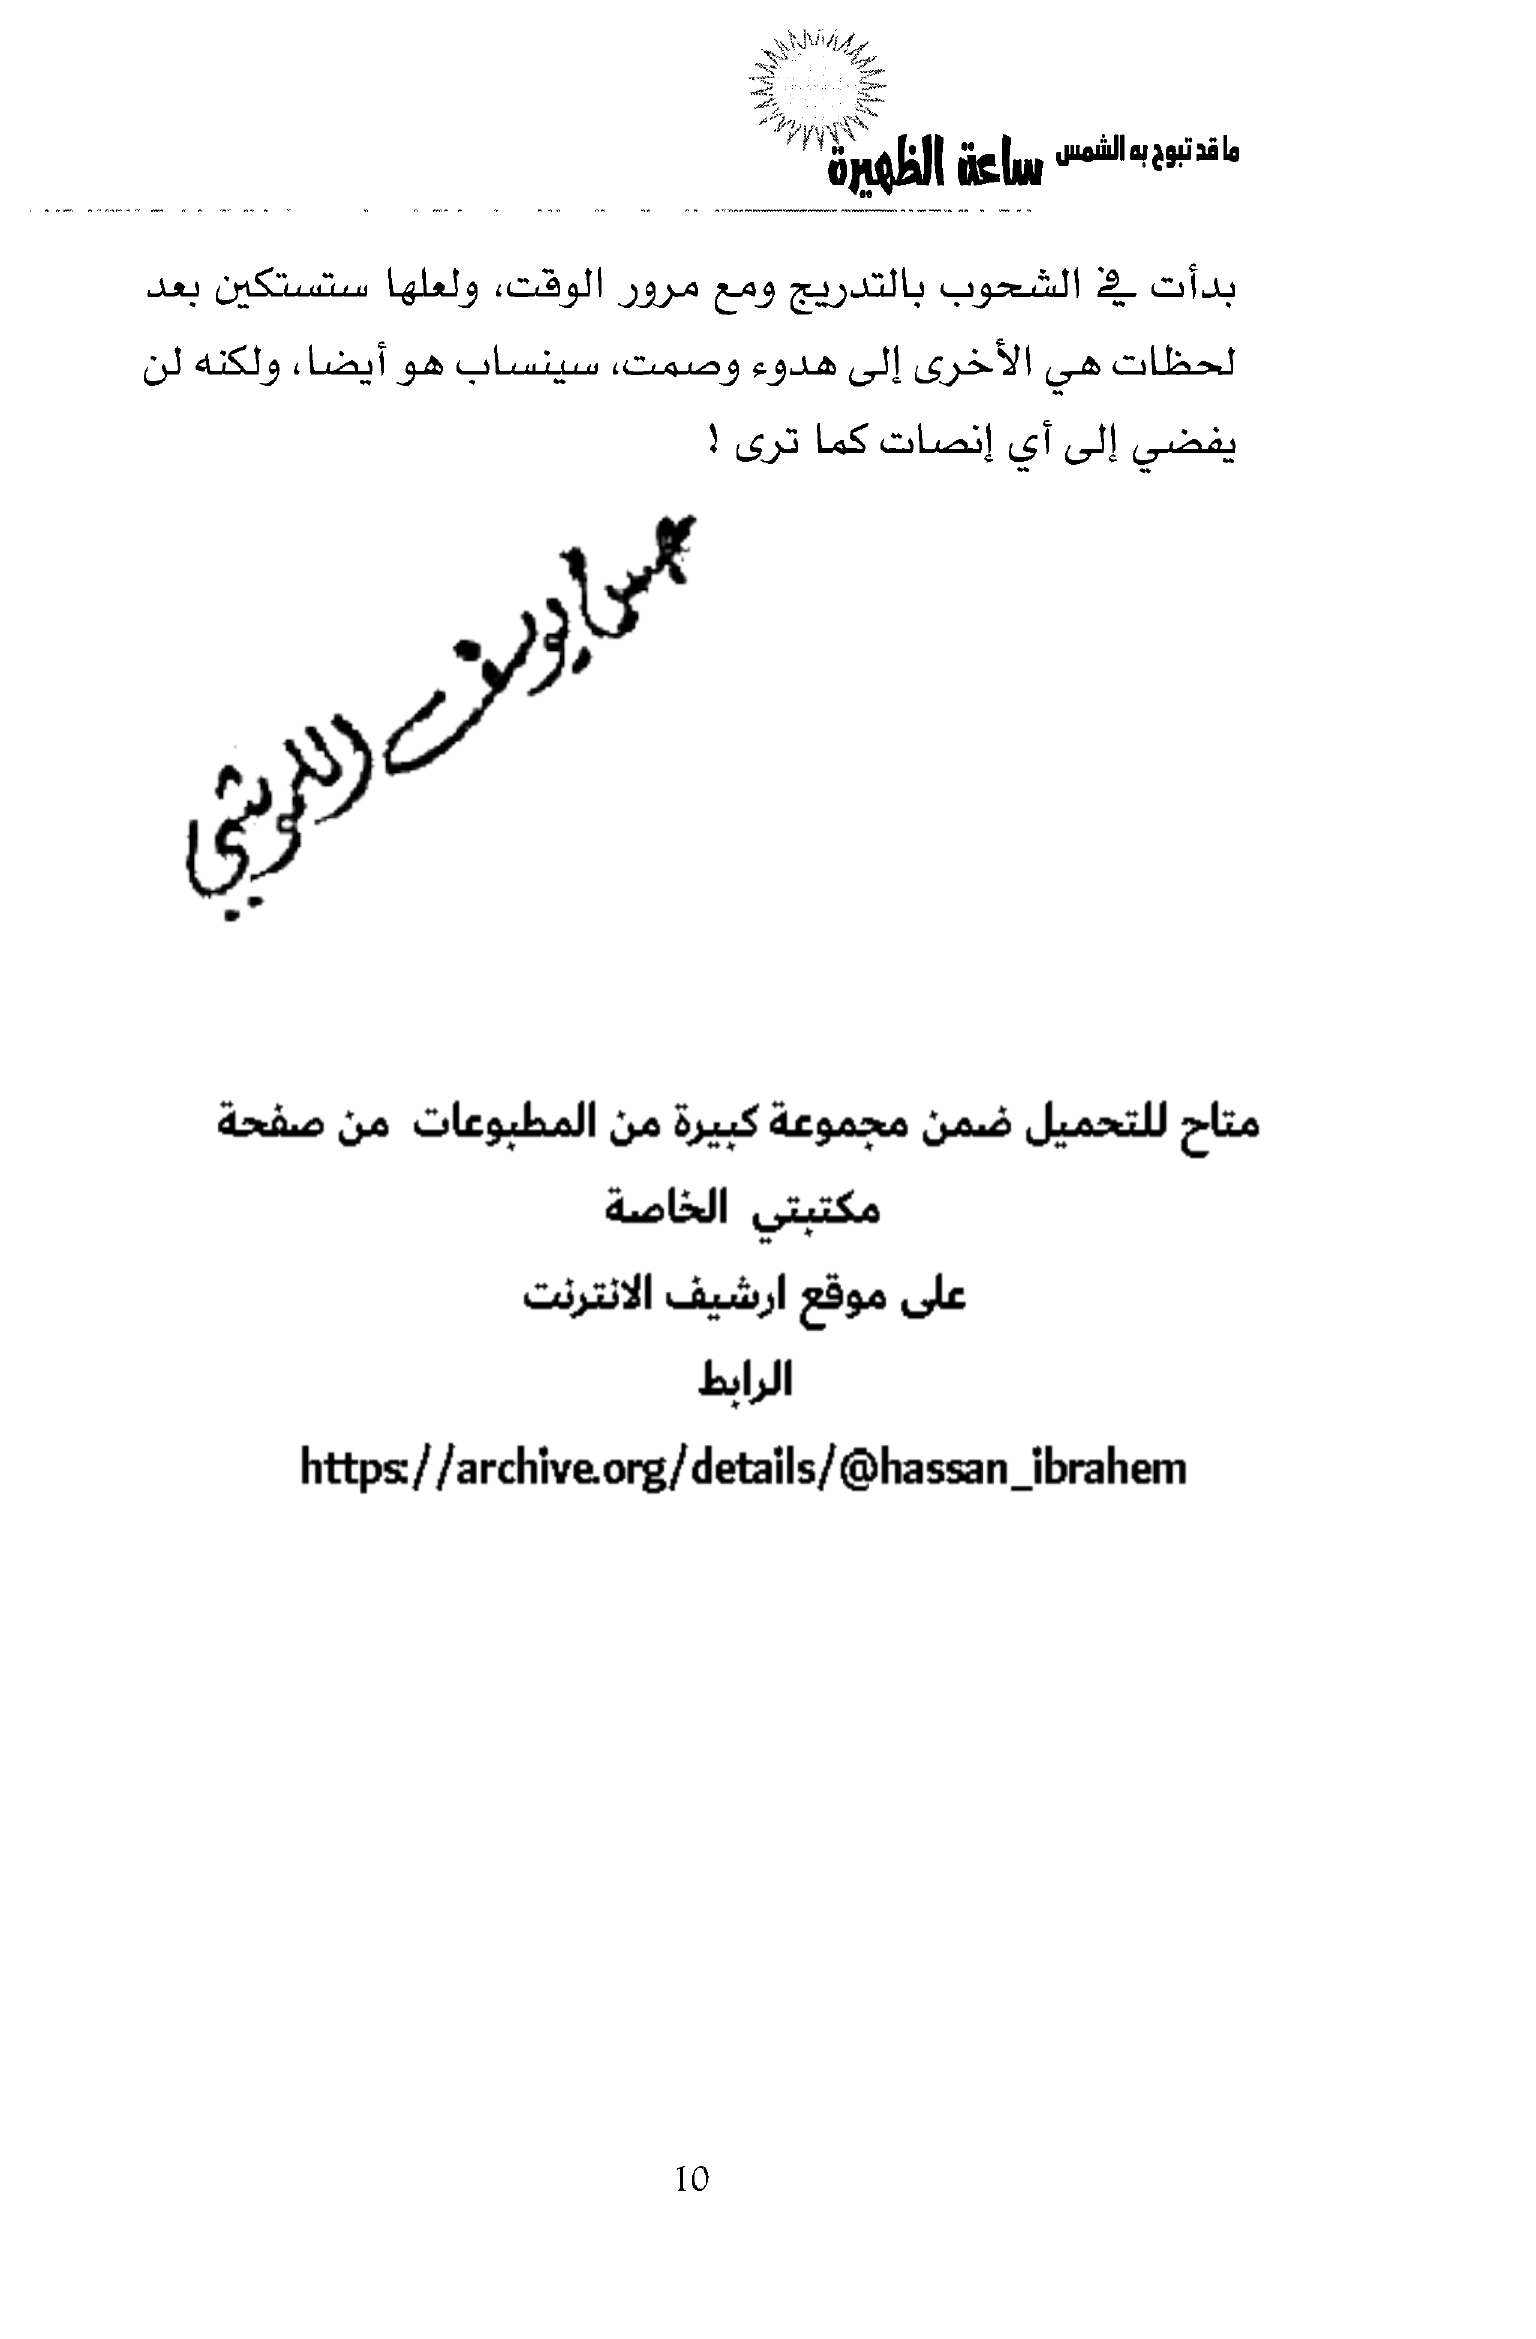 ما قد تبوح به الشمس ساعة الظهيرة
بدأت في الشحوب بالتدريج ومع مرور الوقت، ولعلها ستستكين بعد
لحظات هي الأخرى إلى هدوء وصمت، سينساب هو أيضا، ولكنه لن
يفضي إلى أي إنصات كما ترى !
يوسف
متاح للتحميل ضمن مجموعة كبيرة من المطبوعات من صفحة
مكتبتي الخاصة
على موقع ارشيف الانترنت
الرابط
https://archive.org/details/@hassan_ibrahem
10